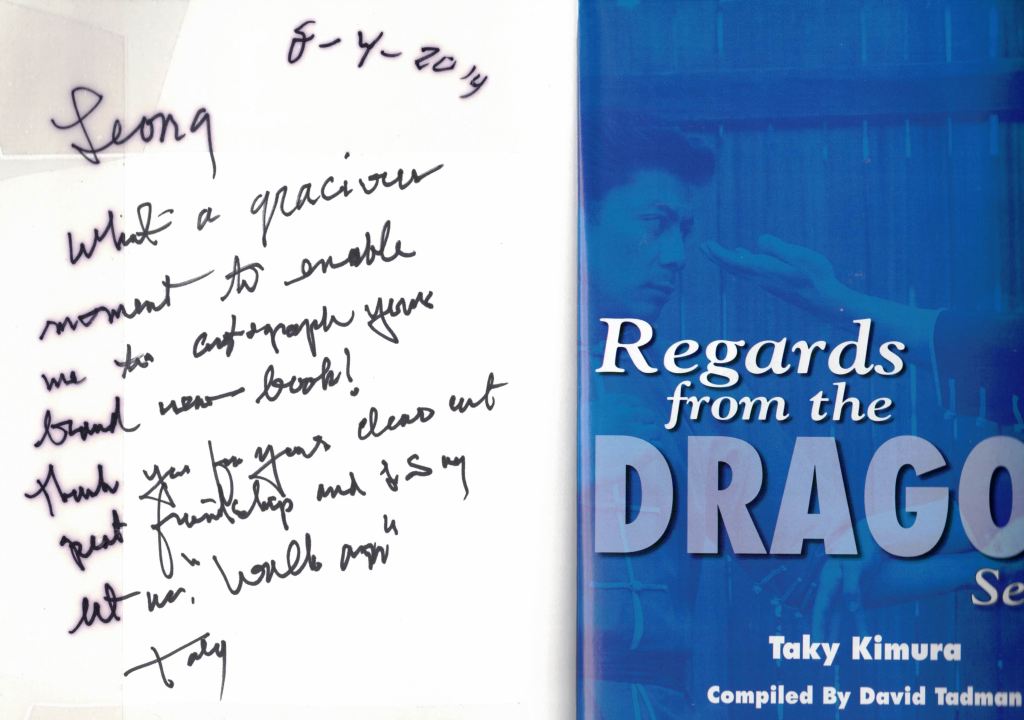 8-4-2014
Leong
What a gracious
moment to enable
me to autograph your
brand new book!
Thank you for your
past friendship and I say
let us, "Walk on"
Taky
Regards
from the
DRAGO
Se
Taky Kimura
Compiled By David Tadman